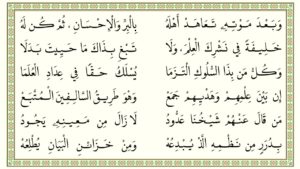 وَبَعْدَ مَوْتِهِ تَعَاهَدْ أَهْلَهُ بِالْبِرِّ وَالْإِحْسَانِ، ثُمَّ كُنْ لَهُ
خَلِيفَةً فِي نَشْرِكَ الْعِلْمَ، وَلَا تَبْغِ بِذَاكَ مَا حَيِيتَ بَدَلَا
وَكُلُّ مَنْ بِذَا السُّلُوكِ الْتَزَمَا يُسْلَكُ حَقًّا فِي عِدَادِ الْعُلَمَا
إِذْ بَيْنَ عِلْمِهِمْ وَهَدْيِهِمْ جَمَعْ وَهْوَ طَرِيقُ السَّالِفِينَ الْمُتَّبَعْ
مَنْ قَالَ عَنْهُمْ شَيْخُنَا عَدُّودُ لَا زَالَ مِنْ مَعِينِهِ يَجُودُ
بِدُرَرٍ مِنْ نَظْمِهِ الَّذْ يُبْدِعُهُ وَمِنْ خَزَائِنِ الْبَيَانِ يُطْلِعُهُ